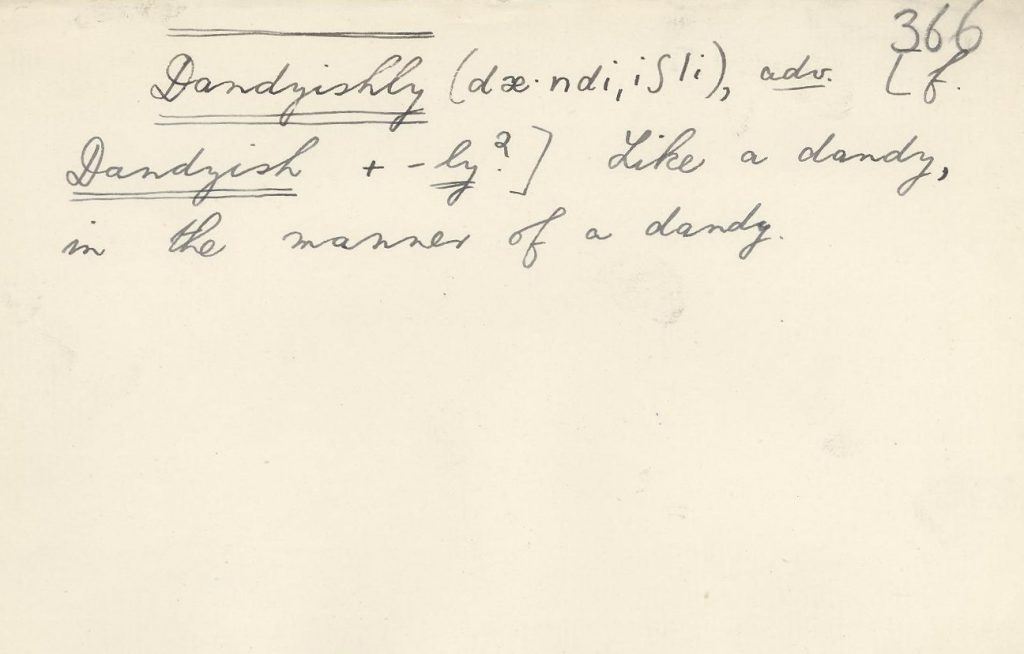 366
Dandyishly (dæ·ndi,iʃli), adv. [f.
Dandyish + -ly².] Like a dandy,
in the manner of a dandy.